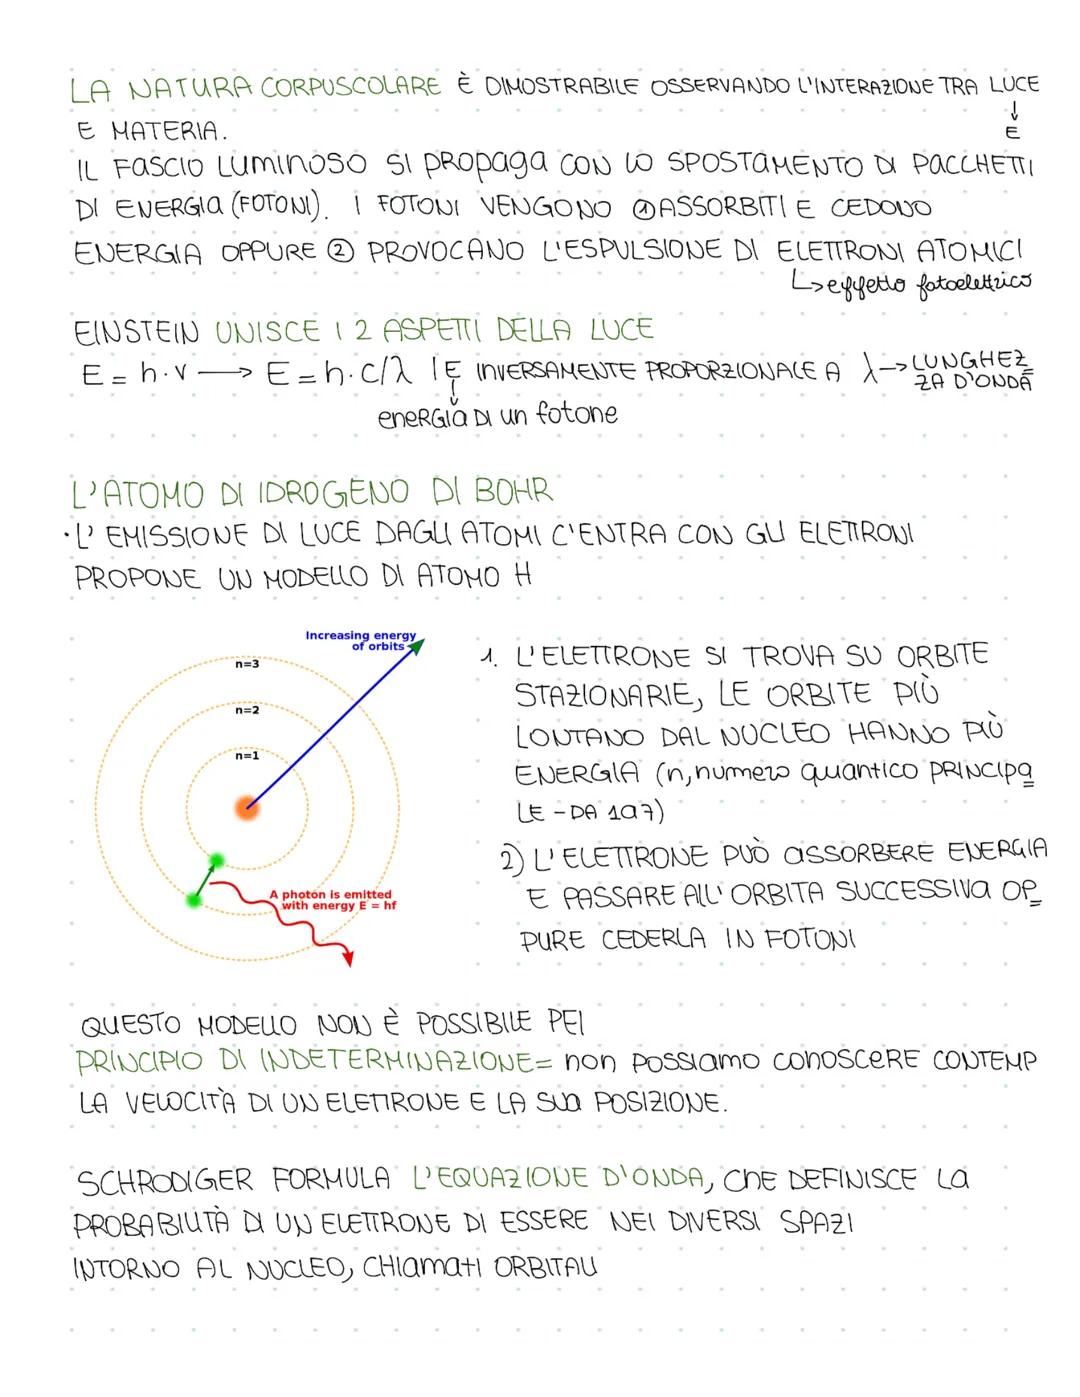 LA NATURA CORPUSCOLARE È DIMOSTRABILE OSSERVANDO L'INTERAZIONE TRA LUCE
↓
E MATERIA. E
IL FASCIO LUMINOSO SI PROPAGA CON LO SPOSTAMENTO DI PACCHETTI
DI ENERGIA (FOTONI). I FOTONI VENGONO ① ASSORBITI E CEDONO
ENERGIA OPPURE ② PROVOCANO L'ESPULSIONE DI ELETTRONI ATOMICI
↳ effetto fotoelettrico
EINSTEIN UNISCE I 2 ASPETTI DELLA LUCE
E = h·ν → E = h·c/λ | E INVERSAMENTE PROPORZIONALE A λ → LUNGHEZ
ZA D'ONDA
↓
energia DI un fotone
L'ATOMO DI IDROGENO DI BOHR
· L'EMISSIONE DI LUCE DAGLI ATOMI C'ENTRA CON GLI ELETTRONI
PROPONE UN MODELLO DI ATOMO H
Increasing energy
of orbits
n=3
n=2
n=1
A photon is emitted
with energy E = hf
1. L'ELETTRONE SI TROVA SU ORBITE
STAZIONARIE, LE ORBITE PIÙ
LONTANO DAL NUCLEO HANNO PIÙ
ENERGIA (n, numero quantico PRINCIPA
LE - DA 1 a 7)
2) L'ELETTRONE PUÒ ASSORBERE ENERGIA
E PASSARE ALL'ORBITA SUCCESSIVA OP
PURE CEDERLA IN FOTONI
QUESTO MODELLO NON È POSSIBILE PEI
PRINCIPIO DI INDETERMINAZIONE = non possiamo conoscere CONTEMP
LA VELOCITÀ DI UN ELETTRONE E LA SUA POSIZIONE.
SCHRODIGER FORMULA L'EQUAZIONE D'ONDA, CHE DEFINISCE LA
PROBABILITÀ DI UN ELETTRONE DI ESSERE NEI DIVERSI SPAZI
INTORNO AL NUCLEO, CHIAMATI ORBITALI